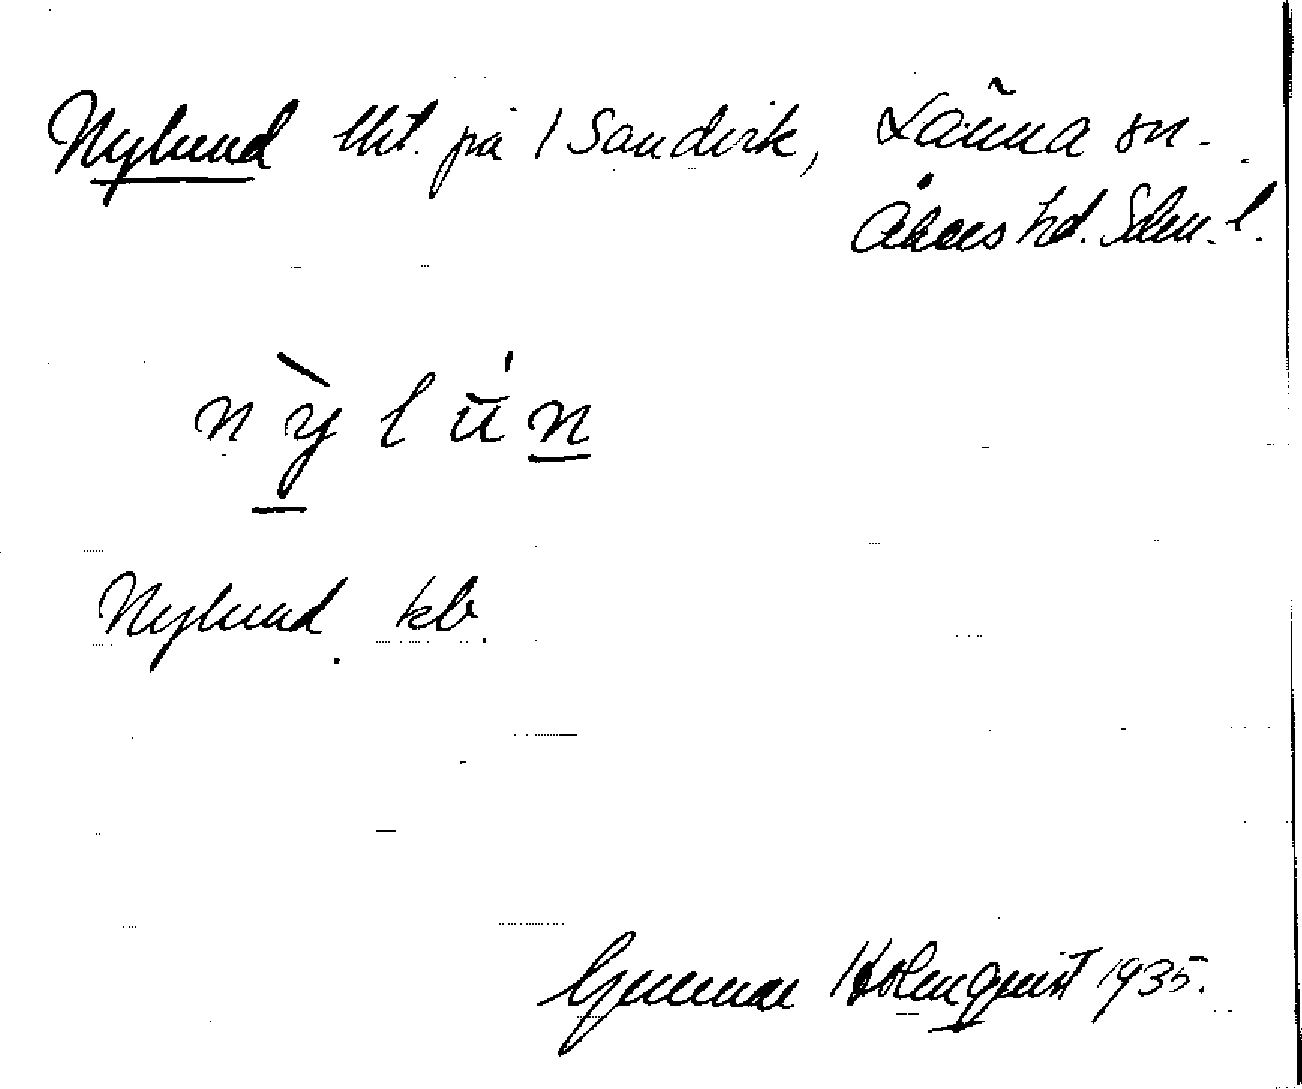 Nylund lht. på 1 Sandvik, Länna sn.
Åkers hd. Sdm. l.
nỳlún
Nylund kb.
Gunnar Holmquist 1935.